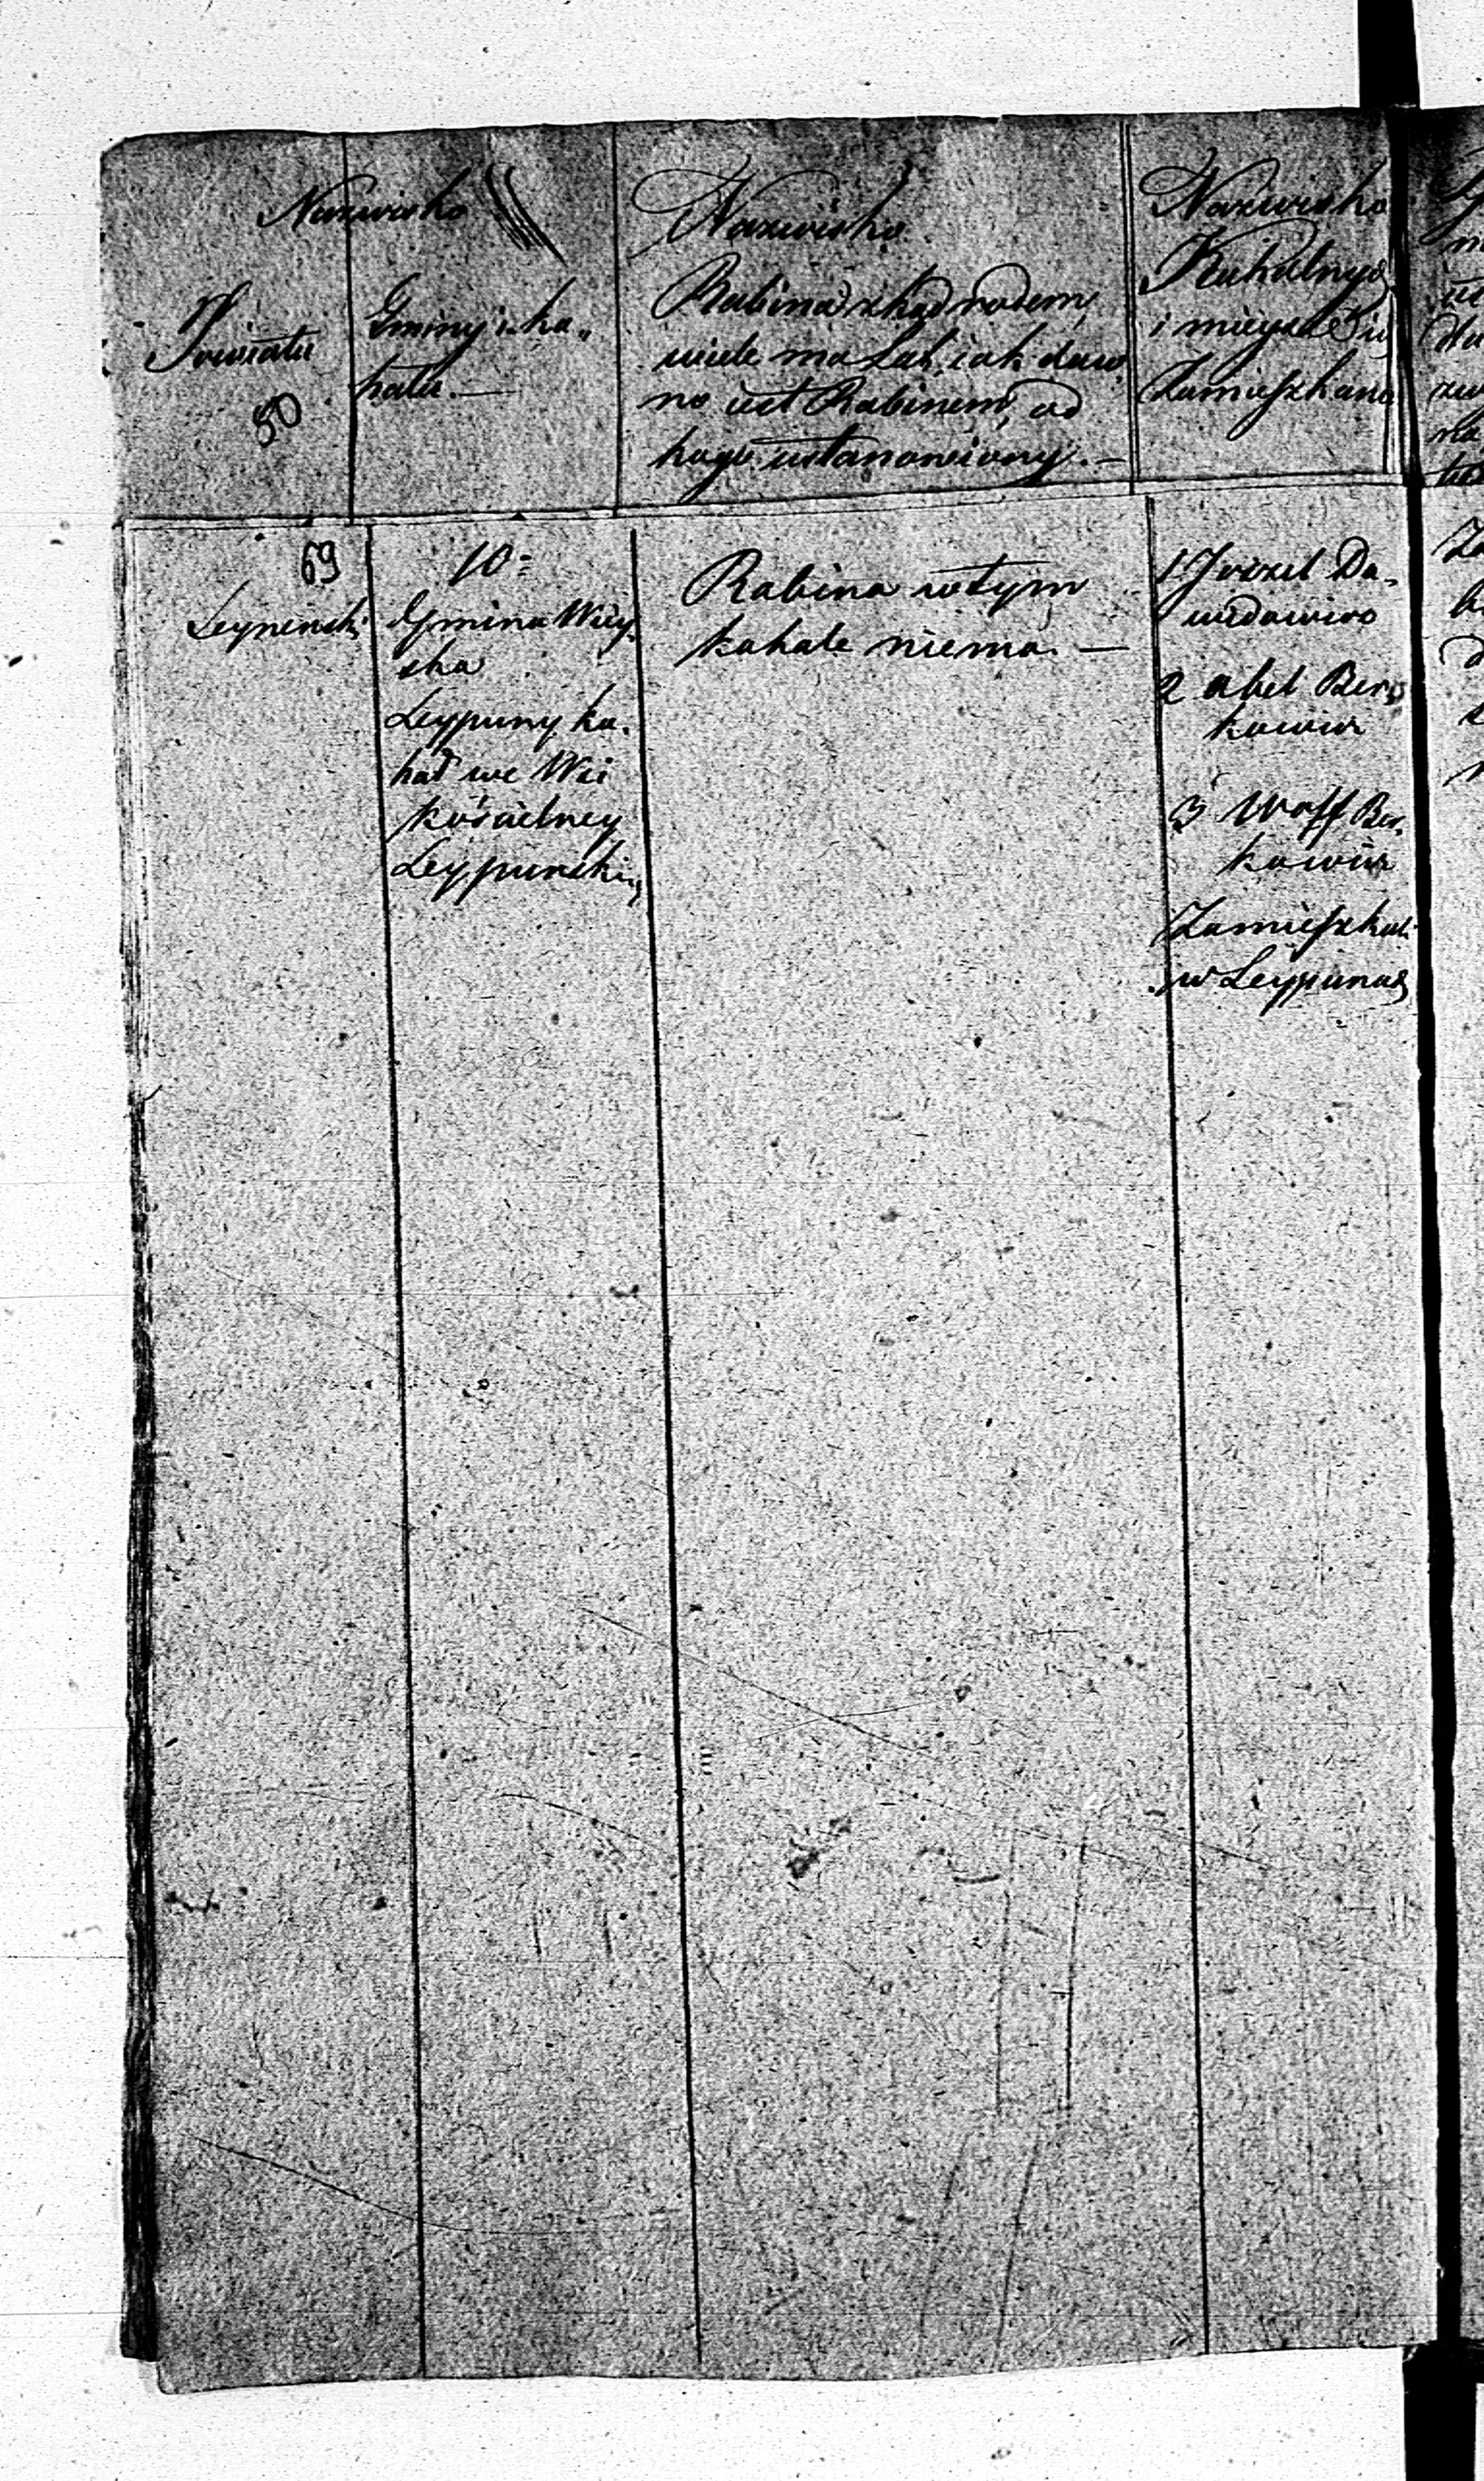 Nazwisko
Powiatu
50
Gminy i ka„
hału. —
Nazwisko
Rabina zkąd rodem,
wiele ma lat, iak daw„
no iest Rabinem, od
kogo ustanowiony. —
Nazwisko
Kahalnych
i mieysce ich
Zamieszkania
69
Seynenski
10=
Gmina Wiey„
ska
Leypuny ka„
hał we Wsi
kościelney
Leypunskiey
Rabina w tym
kahale niema. —
1 Jozel Da„
widowicz
2 abel Ber„
kowicz
3 Wolff Ber„
kowicz
Zamieszkali
w Leypunach